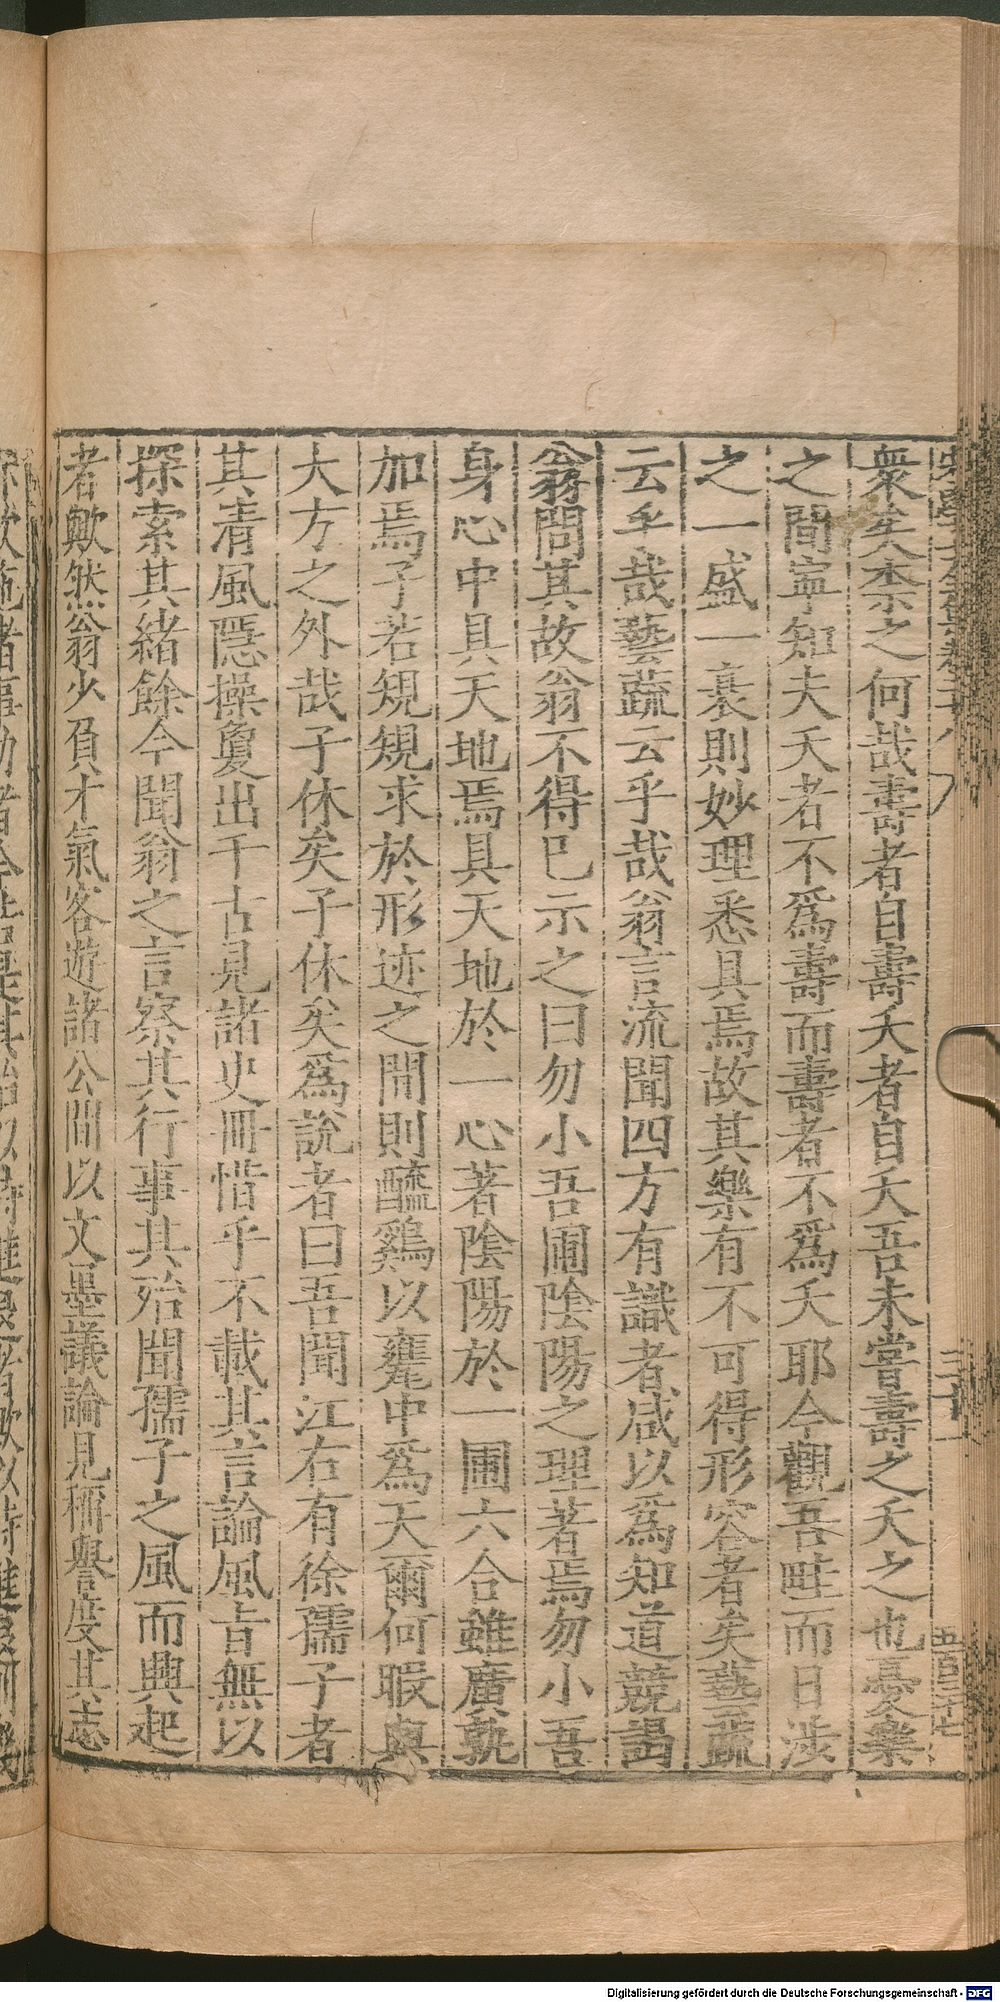 衆矣柰之何哉壽者自壽夭者自夭吾未嘗壽之夭之也憂樂
之間寧知夫夭者不爲壽而壽者不爲夭耶今觀吾畦而日涉
之一盛一衰則妙理悉具焉故其樂有不可得形容者矣藝蔬
云乎哉藝蔬云乎哉翁言流聞四方有識者咸以爲知道競謁
翁問其故翁不得已示之曰勿小吾圃陰陽之理著焉勿小吾
身心中具天地焉具天地於一心著陰陽於一圃六合雖廣孰
加焉子若規規求於形迹之間則醯鷄以甕中爲天爾何暇與
大方之外哉子休矣子休矣爲說者曰吾聞江右有徐孺子者
其清風隱操敻出千古見諸史冊惜乎不載其言論風旨無以
探索其緒餘今聞翁之言察其行事其殆聞孺子之風而興起
者歟然翁少負才氣客遊諸公間以文墨議論見稱譽度其志
Digitalisierung gefördert durch die Deutsche Forschungsgemeinschaft - DFG